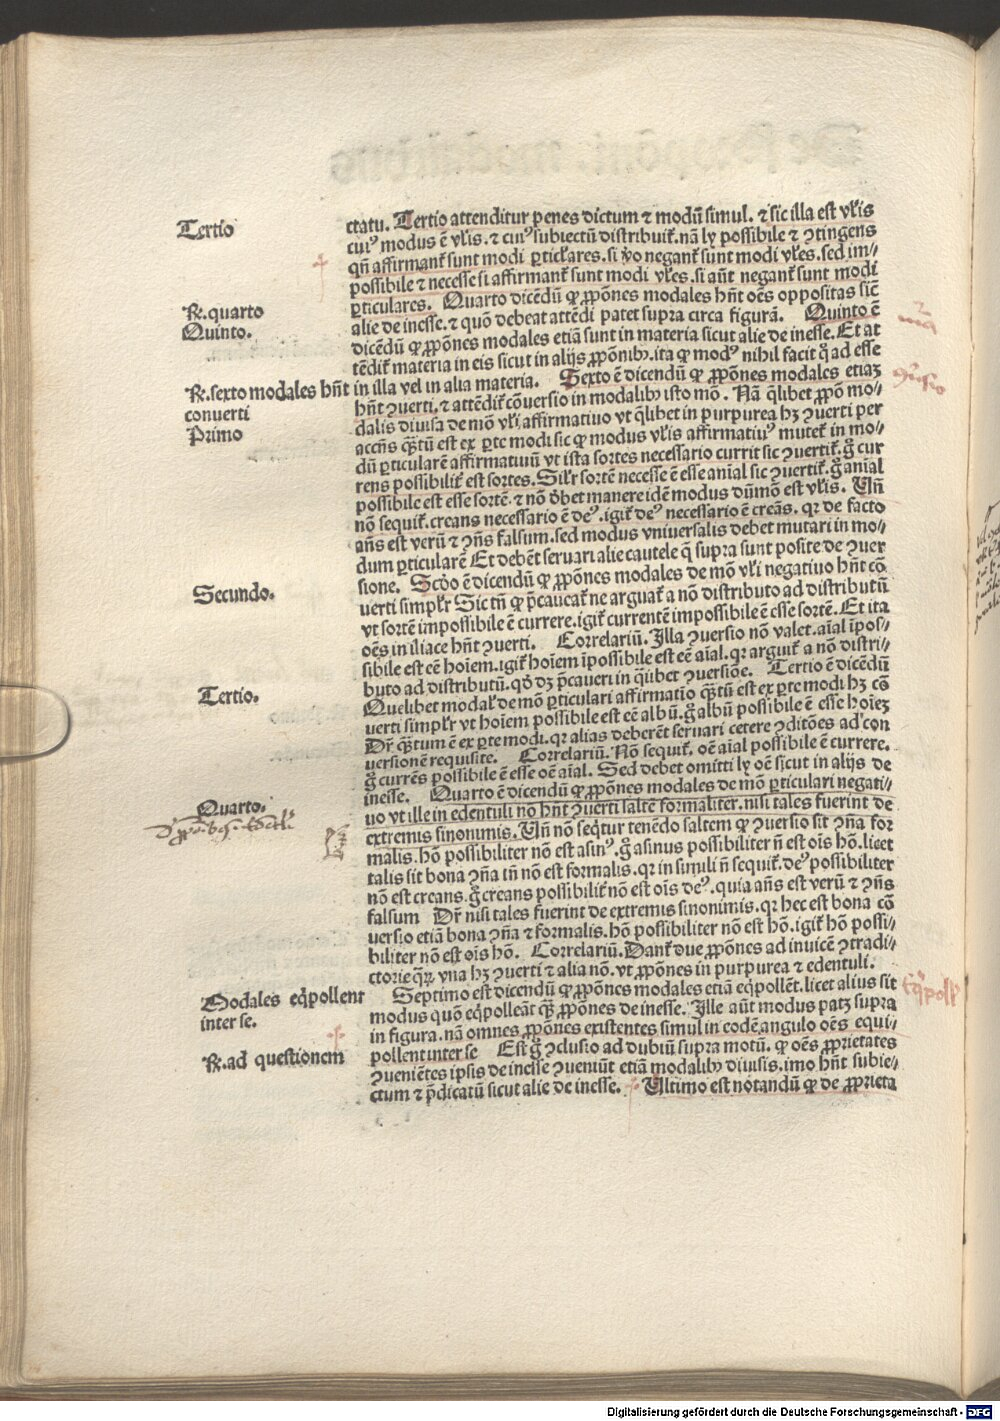 Tertio
ctatu. Tertio attenditur penes dictum ⁊ modũ simul. ⁊ sic illa est vl̃is
cuiꝰ modus ẽ vl̃is. ⁊ cuiꝰ subiectũ distribuit̃. nã ly possibile ⁊ ꝯtingens
qñ affirmant̃ sunt modi ꝑticl̃ares. si ṽo negant̃ sunt modi vl̃es. sed im⸗
possibile ⁊ necesse si affirmant̃ sunt modi vl̃es. si aũt negant̃ sunt modi
ꝑticulares. Quarto dicẽdũ ꝙ ꝓpõnes modales hñt oẽs oppositas siẽ
R̃. quarto
alie de inesse. ⁊ quõ debeat attẽdi patet supra circa figurã. Quinto ẽ
Quinto.
dicẽdũ ꝙ ꝓpõnes modales etiã sunt in materia sicut alie de inesse. Et at
tẽdit̃ materia in eis sicut in alijs ꝓpõnibꝫ. ita ꝙ modꝰ nihil facit q̃ ad esse
R̃. sexto modales hñt
in illa vel in alia materia. Sexto ẽ dicendũ ꝙ ꝓpõnes modales etiaꝫ
converti
hñt ꝯuerti. ⁊ attẽdit̃ cõuersio in modalibꝫ isto mõ. Nã q̃libet ꝓpõ mo⸗
Primo
dalis diuisa de mõ vl̃i affirmatiuo vt q̃libet in purpurea hꝫ ꝯuerti per
accñs q̃ꝫtũ est ex ꝑte modi sic ꝙ modus vl̃is affirmatiuꝰ mutet̃ in mo⸗
dũ ꝑticularẽ affirmatiuũ vt ista sortes necessario currit sic ꝯuertit̃. g̃ cur
rens possibilit̃ est sortes. Silr̃ sortẽ necesse ẽ esse anĩal sic ꝯuertit̃. g̃ anĩal
possibile est esse sortẽ. ⁊ nõ d̃bet manere idẽ modus dũmõ est vl̃is. Vñ
nõ sequit̃. creans necessario ẽ deꝰ. igit̃ deꝰ necessario ẽ creãs. qr de facto
añs est verũ ⁊ ꝯñs falsum. sed modus vniuersalis debet mutari in mo⸗
dum ꝑticularẽ Et debẽt seruari alie cautele q̃ supra sunt posite de ꝯuer
Secundo.
sione. Scd̃o ẽ dicendũ ꝙ ꝓpõnes modales de mõ vl̃i negatiuo hñt cõ
uerti simpl̃r Sic tñ ꝙ p̃caueat̃ ne arguat̃ a nõ distributo ad distributũ
vt sortẽ impossibile ẽ currere. igit̃ currentẽ impossibile ẽ esse sortẽ. Et ita
oẽs in iliace hñt ꝯuerti. Correlariũ. Illa ꝯuersio nõ valet. aĩal ĩpos⸗
sibile est eẽ hoĩem. igit̃ hoĩem ĩpossibile est eẽ aĩal. qr arguit̃ a nõ distri⸗
buto ad distributũ. qd̃ dꝫ p̃caueri in q̃libet ꝯuersiõe. Tertio ẽ dicẽdũ
Tertio.
Quelibet modal̃ de mõ ꝑticulari affirmatio q̃ꝫtũ est ex ꝑte modi hꝫ cõ
uerti simpl̃r vt hoĩem possibile est eẽ albũ. g̃ albũ possibile ẽ esse hoĩeꝫ
Dr̃ q̃ꝫtum ẽ ex ꝑte modi. qr alias deberẽt seruari cetere ꝯditões ad con
versionẽ requisite. Correlariũ. Nõ sequit̃. oẽ aĩal possibile ẽ currere.
g̃ currẽs possibile ẽ esse oẽ aĩal. Sed debet omitti ly oẽ sicut in alijs de
inesse. Quarto ẽ dicendũ ꝙ ꝓpõnes modales de mõ ꝑticulari negati⸗
Quarto.
uo vt ille in edentuli nõ hñt ꝯuerti saltẽ formaliter. nisi tales fuerint de
extremis sinonimis. Vñ nõ seq̃tur tenẽdo saltem ꝙ ꝯuersio sit ꝯña for
malis. hõ possibiliter nõ est asinꝰ. g̃ asinus possibiliter ñ est oĩs hõ. licet
talis sit bona ꝯña tñ nõ est formalis. qr in simili ñ sequit̃. deꝰ possibiliter
nõ est creans. g̃ creans possibilit̃ nõ est oĩs deꝰ. quia añs est verũ ⁊ ꝯñs
falsum Dr̃ nisi tales fuerint de extremis sinonimis. qr hec est bona cõ
versio etiã bona ꝯña ⁊ formalis. hõ possibiliter nõ est hõ. igit̃ hõ possi⸗
biliter nõ est oĩs hõ. Correlariũ. Dant̃ due ꝓpõnes ad inuicẽ ꝯtradi⸗
ctorie qr̃. vna hꝫ ꝯuerti ⁊ alia nõ. vt ꝓpõnes in purpurea ⁊ edentuli.
Modales eq̃pollent
Septimo est dicendũ ꝙ ꝓpõnes modales etiã eq̃pollẽt. licet alius sit
inter se.
modus quõ eq̃polleãt q̃ꝫ ꝓpõnes de inesse. Ille aũt modus patꝫ supra
in figura. nã omnes ꝓpõnes existentes simul in eodẽ angulo oẽs equi⸗
R̃. ad questionem
pollent inter se Est g̃ ꝯclusio ad dubiũ supra motũ. ꝙ oẽs ꝓprietates
ꝯueniẽtes ipsis de inesse ꝯueniũt etiã modalibꝫ diuisis. imo hñt subie⸗
ctum ⁊ p̃dicatũ sicut alie de inesse. Ultimo est notandũ ꝙ de ꝓprieta
Digitalisierung gefördert durch die Deutsche Forschungsgemeinschaft - DFG